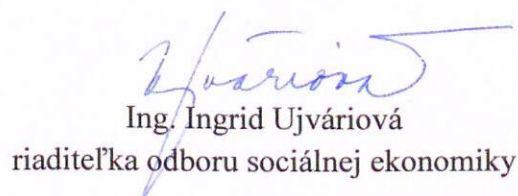 Ujváriová
Ing. Ingrid Ujváriová
riaditeľka odboru sociálnej ekonomiky